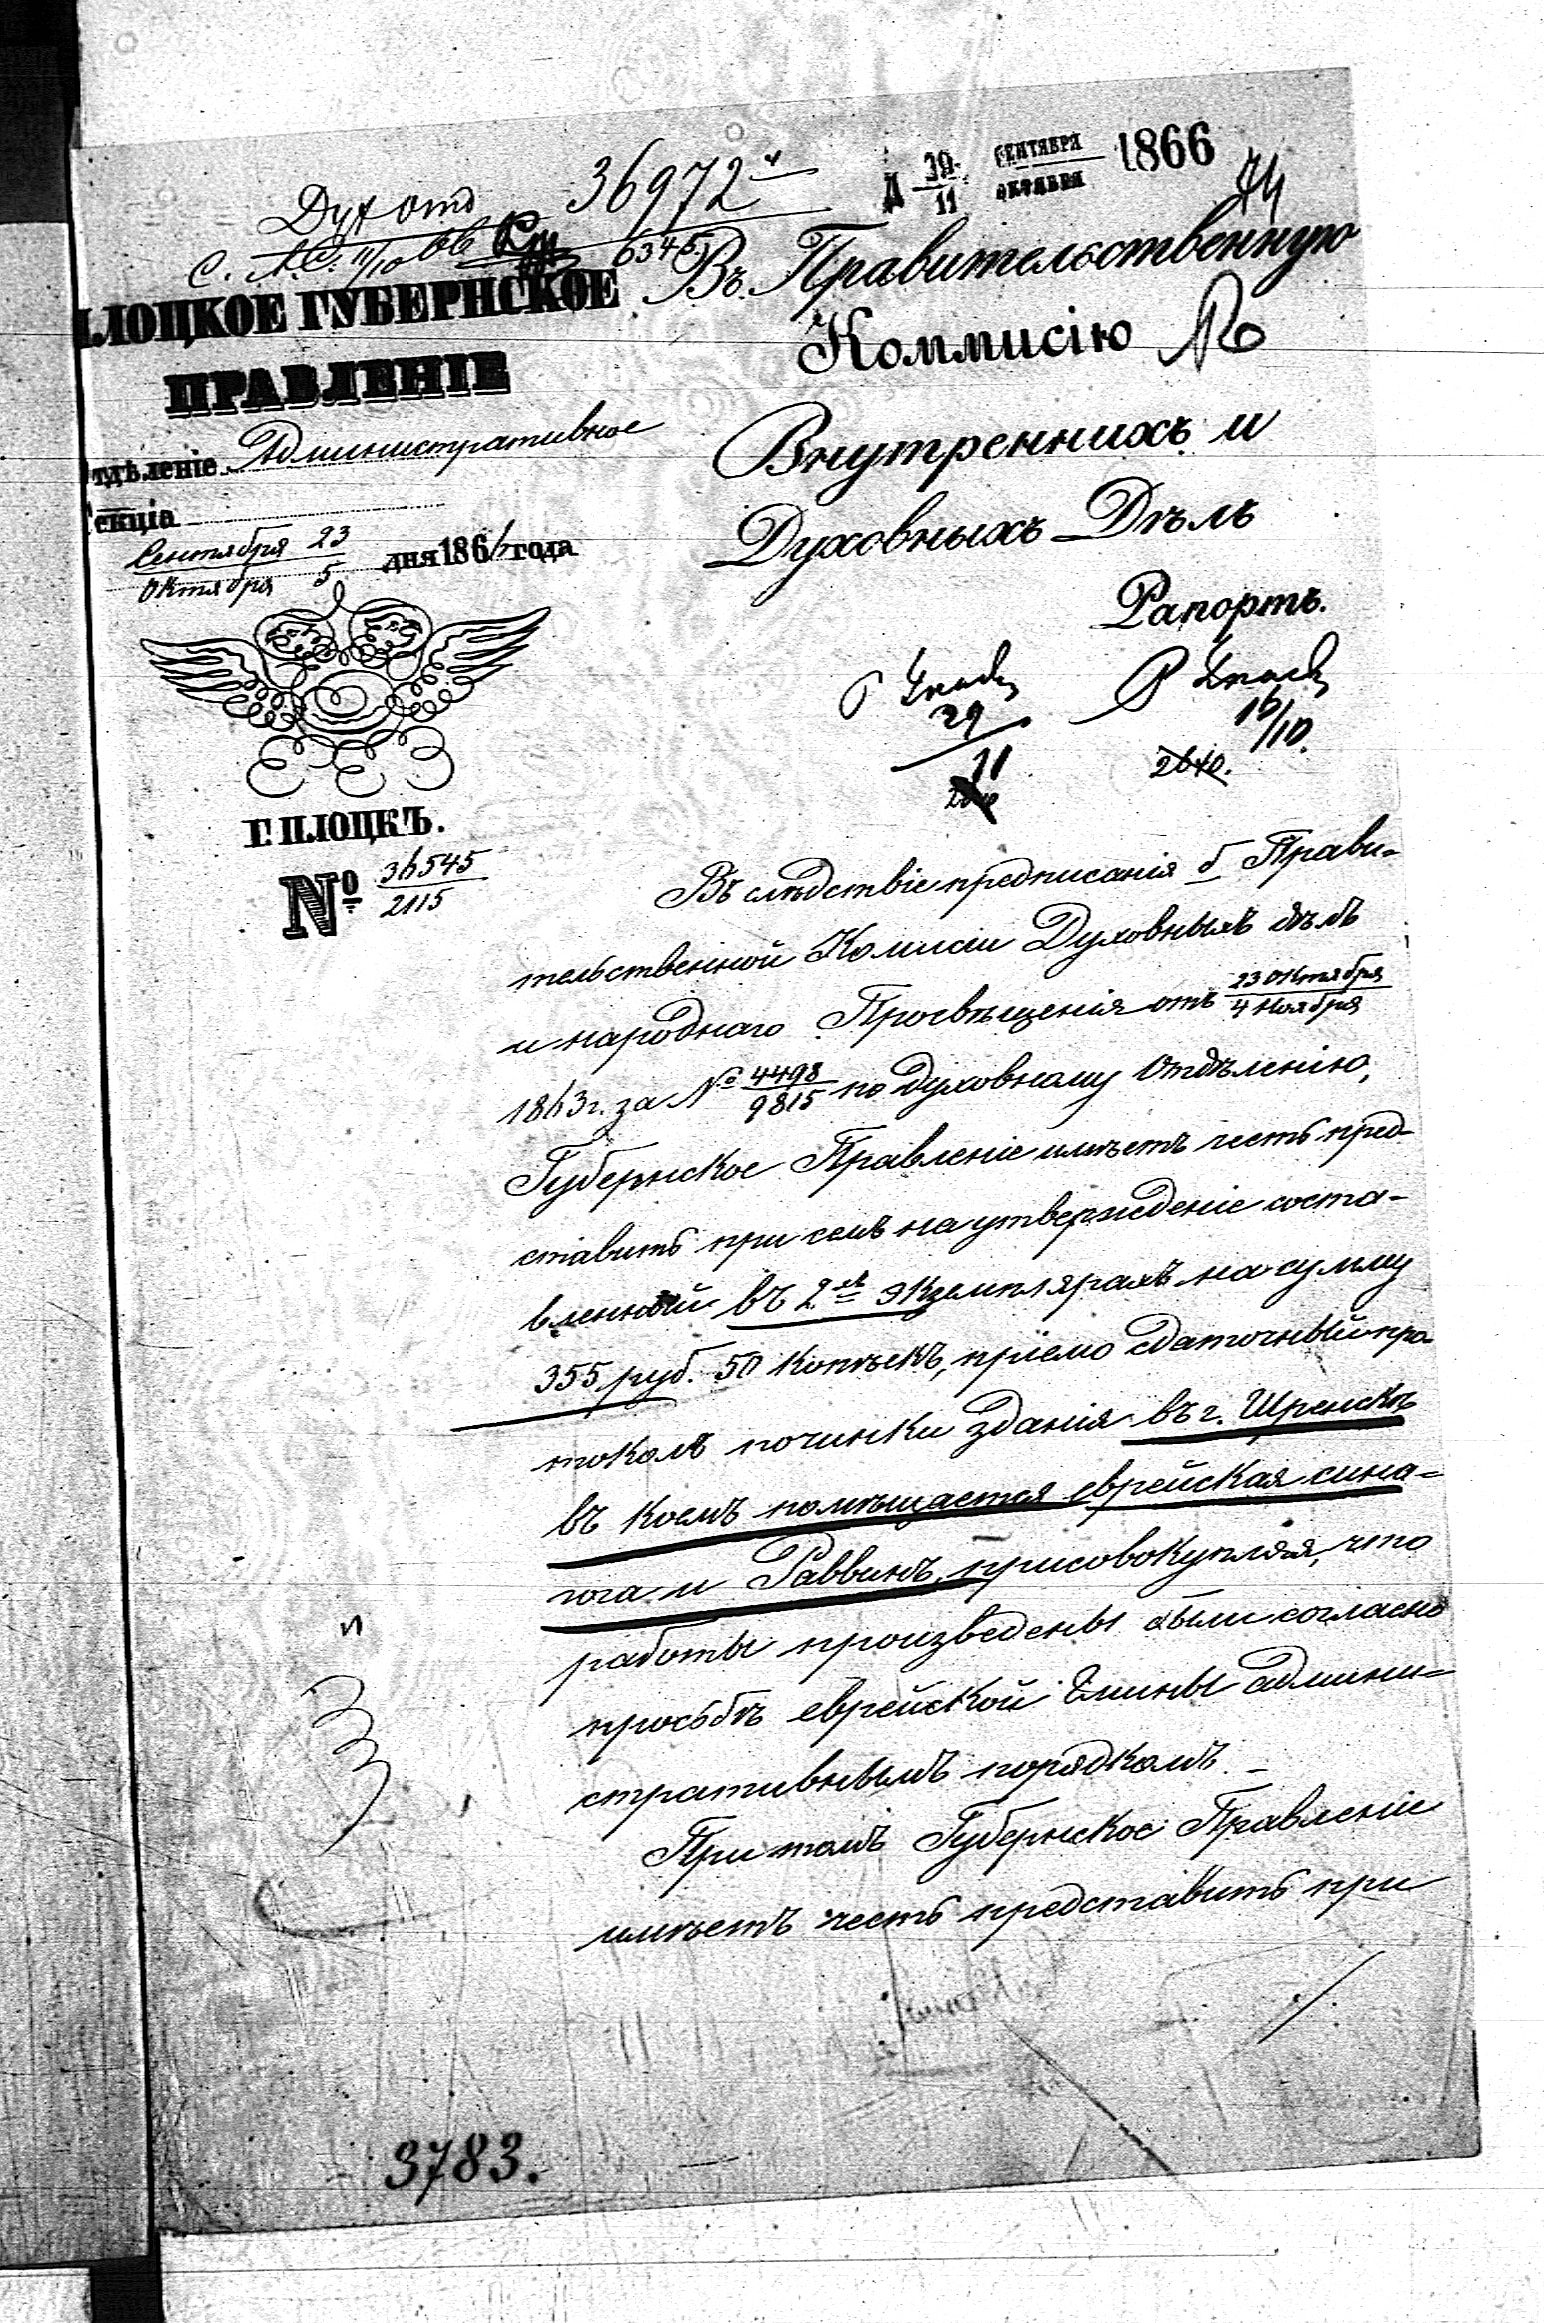 Д 30/11 СЕНТЯБРЯ/ОКТЯБРЯ 1866
74
Дух Отд 36972
11/10 66 6345
Въ Правительственную
Коммисію
Внутреннихъ и
Духовныхъ Дѣлъ
Рапортъ.
ПЛОЦКОЕ ГУБЕРНСКОЕ
ПРАВЛЕНІЕ
Отдѣленіе Административное
Секція
Сентября 23 / Октября 5 дня 1866 года
Г. ПЛОЦКЪ.
№ 36545/2115
29/11
16/10.
2640.
Въ слѣдствіе предписанія б Прави-
тельственной Комисіи Духовныхъ дѣлъ
и народнаго Просвѣщенія отъ 23 Октября / 4 Ноября
1863 г. за № 4498/9815 по духовному Отдѣленію,
Губернское Правленіе имѣетъ честь пред-
ставить при семъ на утвержденіе соста-
вленный въ 2хъ экземплярахъ на сумму
355 руб. 50 копѣекъ, пріемо сдаточный про
токолъ починки зданія въ г. Шренскѣ
въ коемъ помѣщается еврейская сина-
гога и Раввинъ, присовокупляя, что
работы произведены были согласно
просьбѣ еврейской Гмины админи-
стративнымъ порядкомъ. –
При томъ Губернское Правленіе
имѣетъ честь представить при
./.
3783.